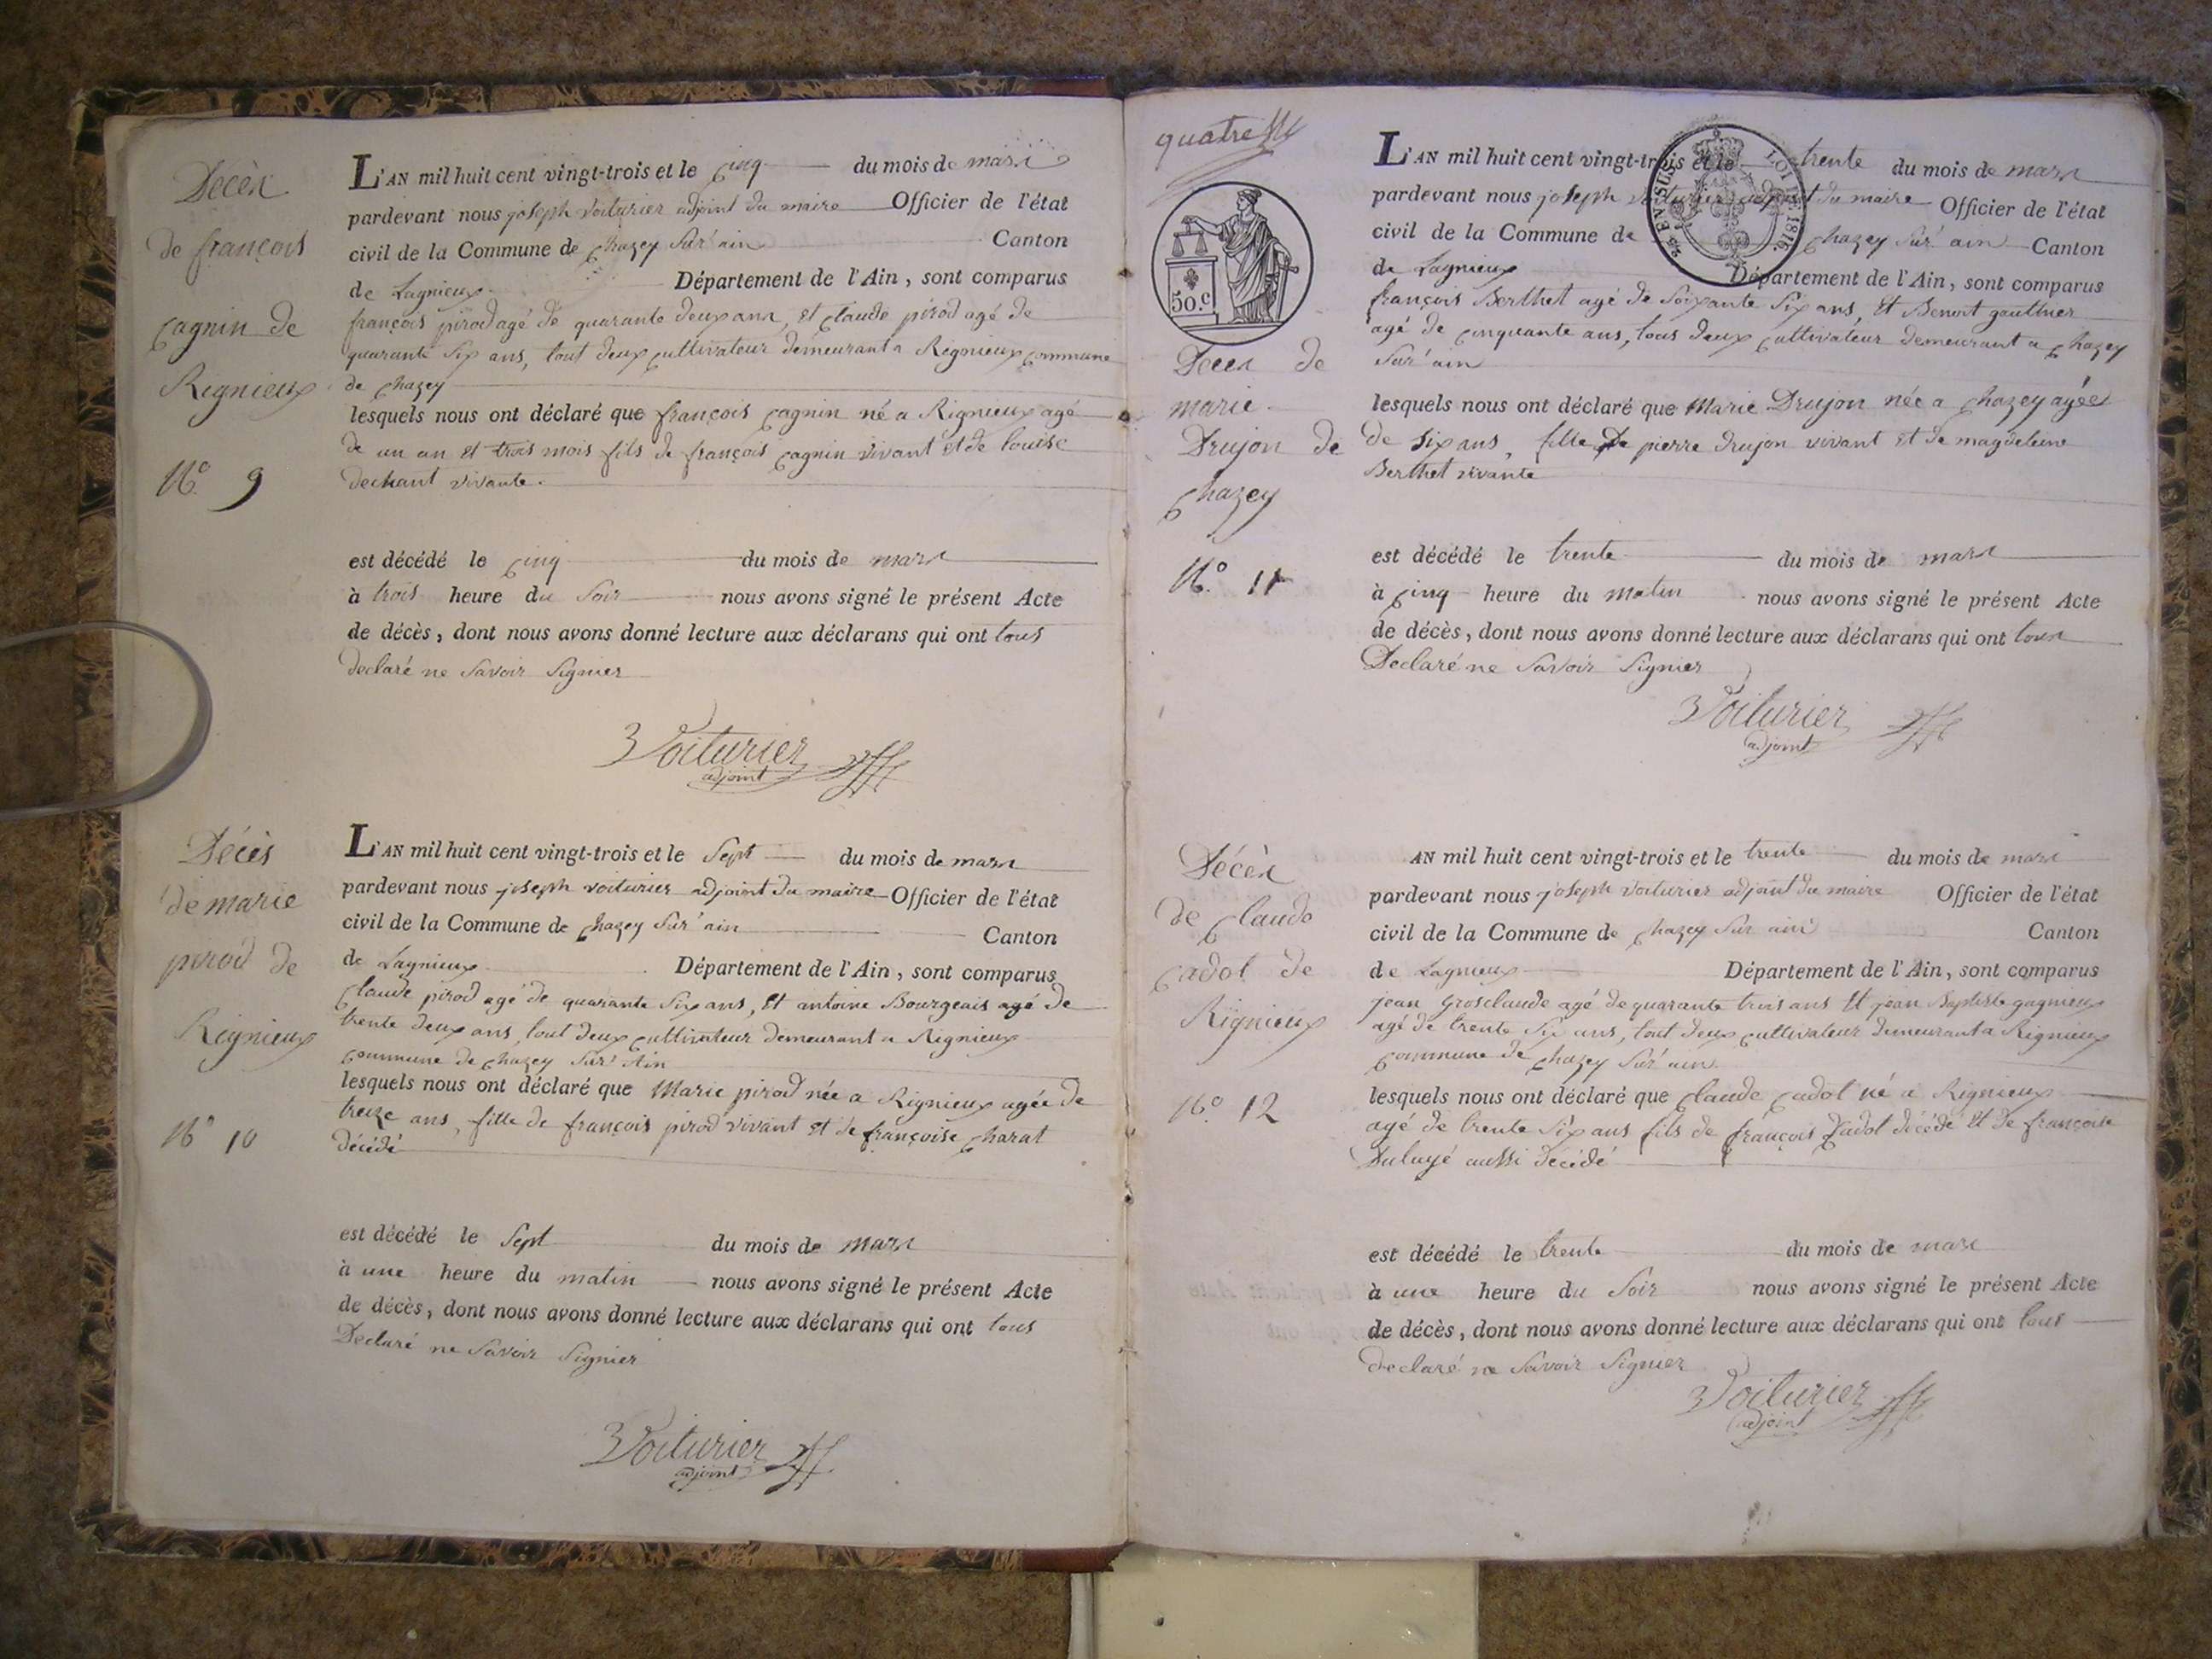 Décès
de françois
Cagnin de
Rignieux
N.° 9
L'AN mil huit cent vingt-trois et le cinq du mois de mars
pardevant nous joseph voiturier adjoint du maire Officier de l'état
civil de la Commune de Chazey sur ain Canton
de Lagnieux Département de l'Ain, sont comparus
françois pirod agé de quarante deux ans, et Claude pirod agé de
quarante six ans, tout deux cultivateur demeurant a Rignieux commune
de Chazey
lesquels nous ont déclaré que françois Cagnin né a Rignieux agé
de un an et trois mois fils de françois Cagnin vivant et de louise
dechant vivante.
est décédé le cinq du mois de mars
à trois heure du soir nous avons signé le présent Acte
de décès, dont nous avons donné lecture aux déclarans qui ont tous
declaré ne savoir signier
Voiturier
adjoint
Décès
de marie
pirod de
Rignieux
N° 10
L'AN mil huit cent vingt-trois et le sept du mois de mars
pardevant nous joseph voiturier adjoint du maire Officier de l'état
civil de la Commune de Chazey sur ain Canton
de Lagnieux Département de l'Ain, sont comparus
Claude pirod agé de quarante six ans, et antoine Bourgeais agé de
trente deux ans, tout deux cultivateur demeurant a Rignieux
commune de Chazey sur Ain
lesquels nous ont déclaré que Marie pirod née a Rignieux agée de
treize ans, fille de françois pirod vivant et de françoise Charat
décédé
est décédé le sept du mois de mars
à une heure du matin nous avons signé le présent Acte
de décès, dont nous avons donné lecture aux déclarans qui ont tous
Declaré ne savoir signier
Voiturier
adjoint
quatre
50.c
EN SUS
LOI DE 1816.
Décès de
marie
Drujon de
Chazey
N.° 11
L'AN mil huit cent vingt-trois et le trente du mois de mars
pardevant nous joseph voiturier adjoint du maire Officier de l'état
civil de la Commune de Chazey sur ain Canton
de Lagnieux Département de l'Ain, sont comparus
françois Berthet agé de soixante six ans, et Benoit gauthier
agé de cinquante ans, tous deux cultivateur demeurant a Chazey
sur ain
lesquels nous ont déclaré que Marie Drujon née a Chazey agée
de six ans, fille de pierre drujon vivant et de magdeleine
Berthet vivante
est décédé le trente du mois de mars
à cinq heure du matin nous avons signé le présent Acte
de décès, dont nous avons donné lecture aux déclarans qui ont tous
Declaré ne savoir signier
Voiturier
adjoint
Décès
de Claude
Cadot de
Rignieux
N.° 12
AN mil huit cent vingt-trois et le trente du mois de mars
pardevant nous joseph voiturier adjoint du maire Officier de l'état
civil de la Commune de Chazey sur ain Canton
de Lagnieux Département de l'Ain, sont comparus
jean Grosclaude agé de quarante trois ans et jean Baptiste gagnieux
agé de trente six ans, tout deux cultivateur demeurant a Rignieux
commune de Chazey sur ain
lesquels nous ont déclaré que Claude Cadot né a Rignieux
agé de trente six ans fils de françois Cadot décédé et de françoise
aussi décédé
est décédé le trente du mois de mars
à une heure du soir nous avons signé le présent Acte
de décès, dont nous avons donné lecture aux déclarans qui ont tous
declaré ne savoir signier
Voiturier
adjoint